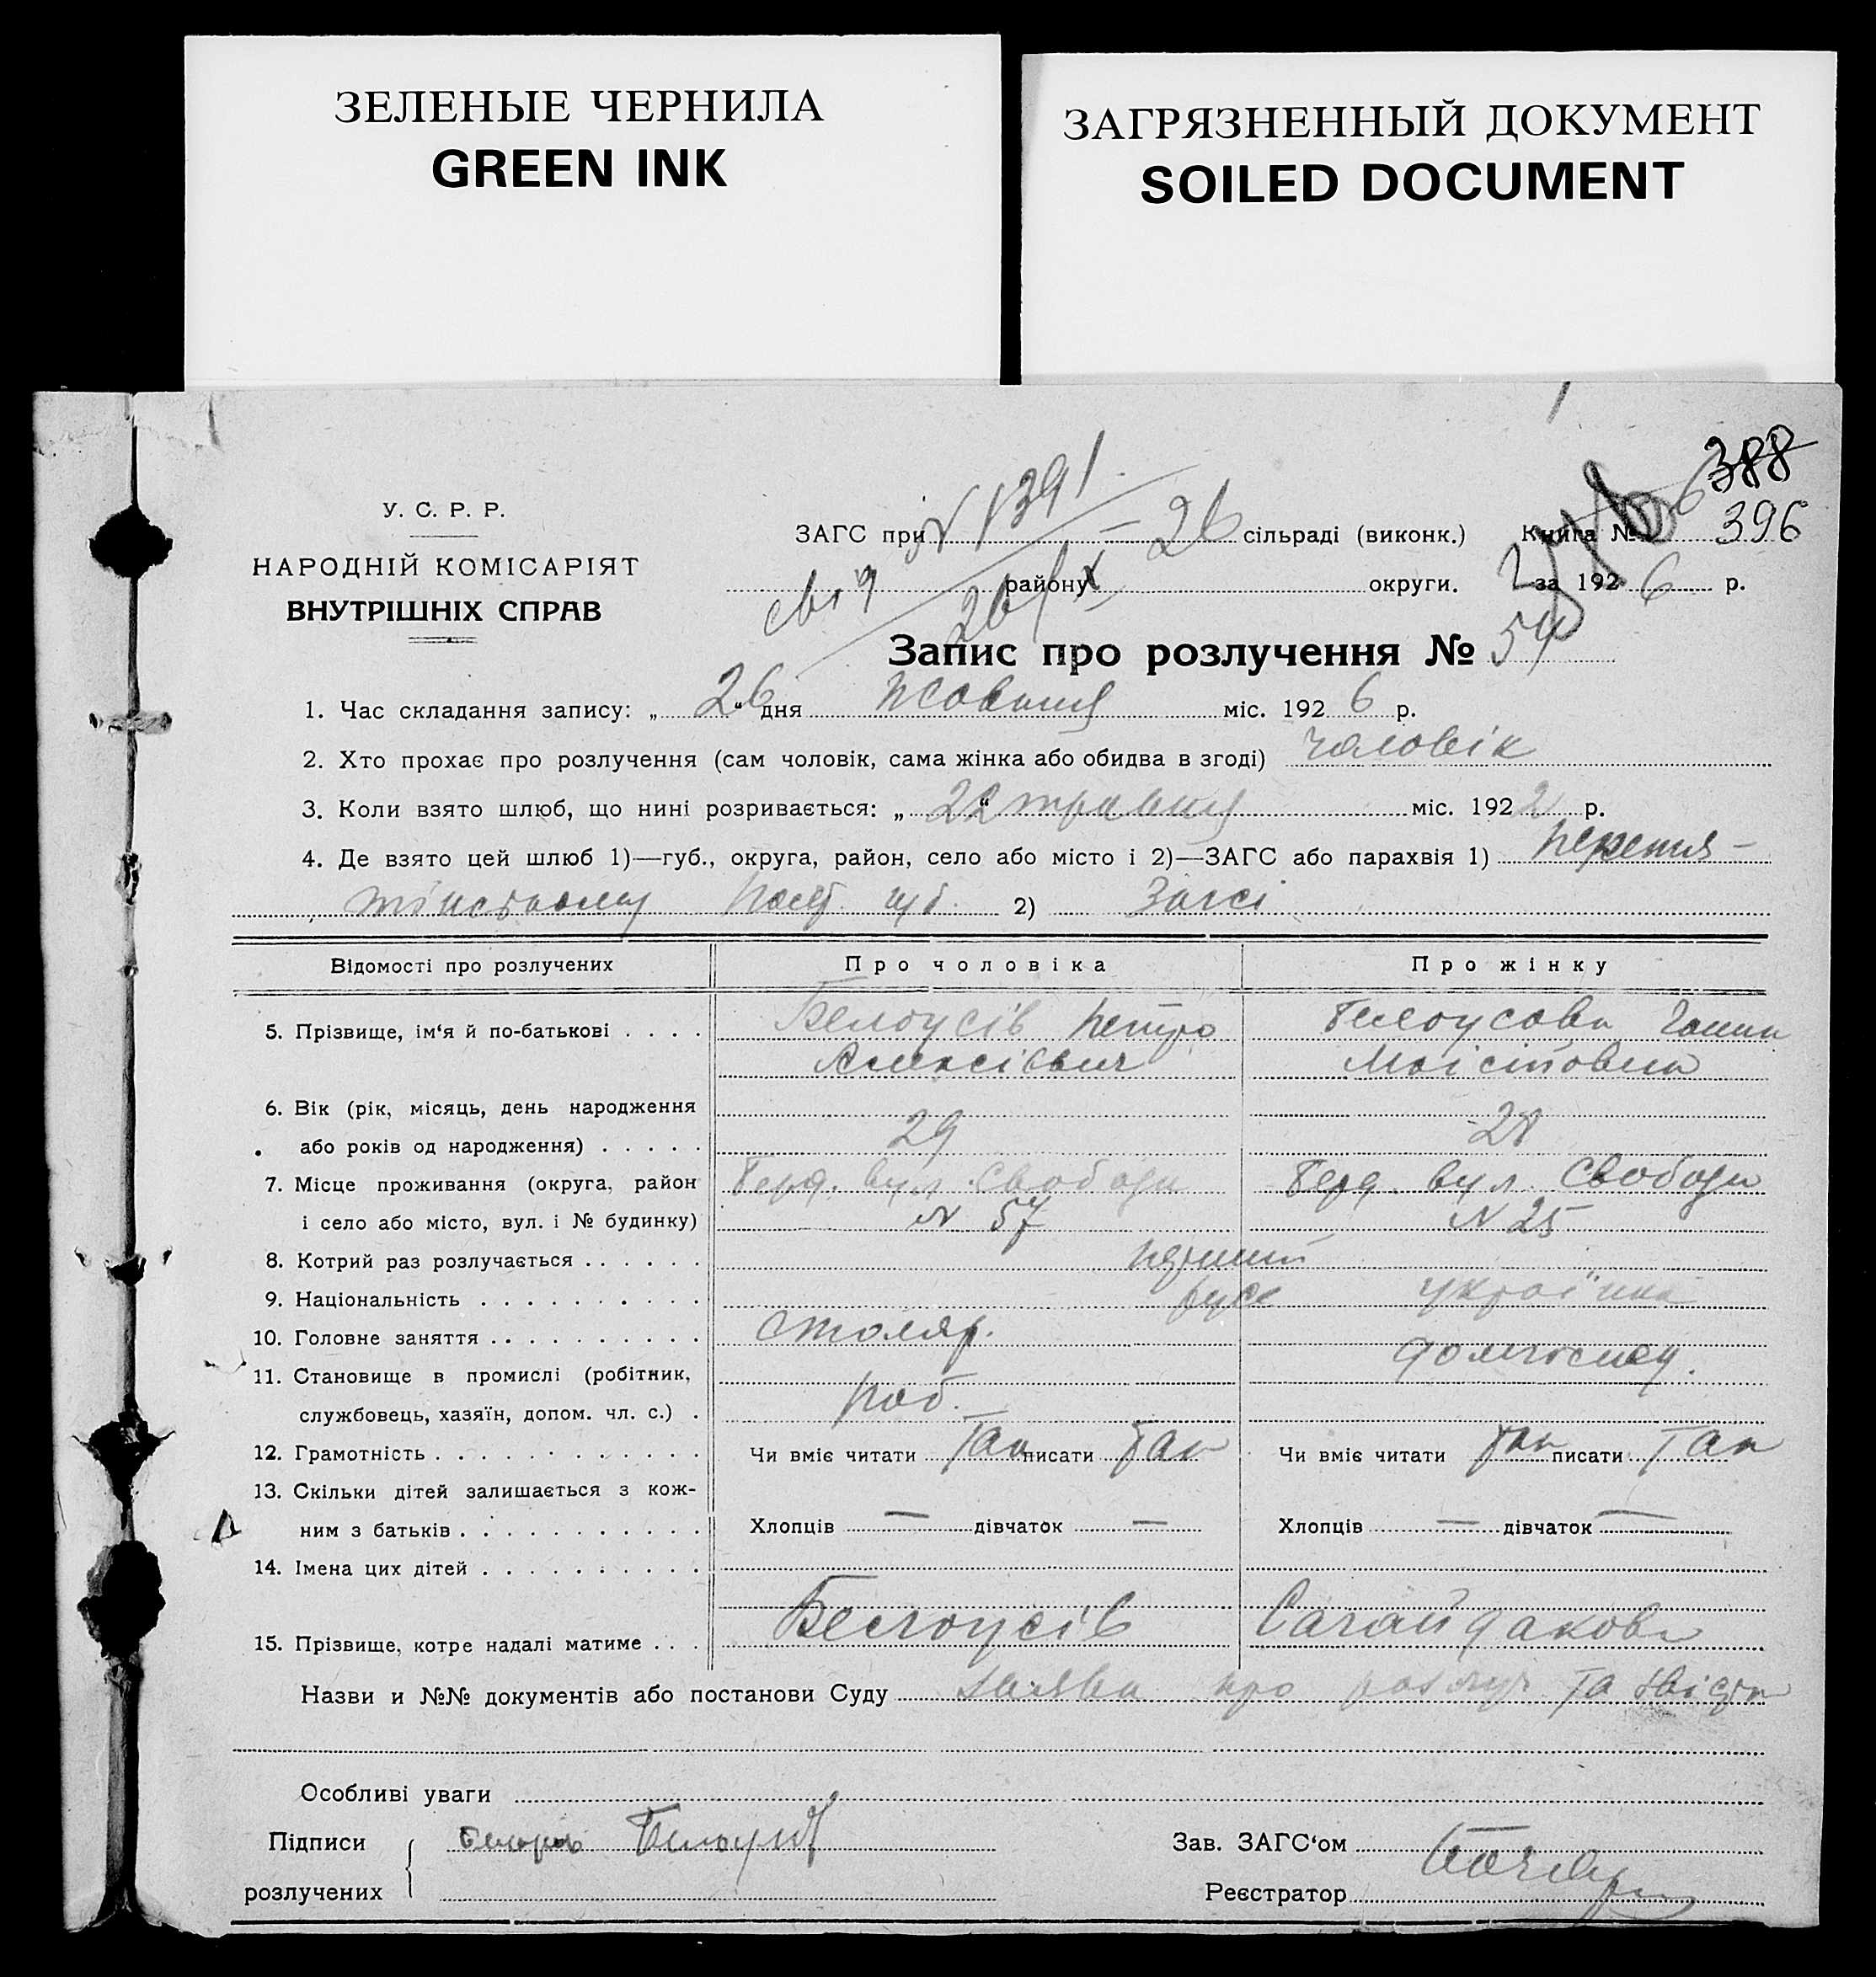 ЗЕЛЕНЫЕ ЧЕРНИЛА
GREEN INK
ЗАГРЯЗНЕННЫЙ ДОКУМЕНТ
SOILED DOCUMENT
388
396
У. С. Р. Р.
НАРОДНІЙ КОМІСАРІЯТ
ВНУТРІШНІХ СПРАВ
ЗАГС при сільраді (виконк.) Книга №
району округи. за 1926 р.
Запис про розлучення № 54
1. Час складання запису: „26“ дня жовтня міс. 1926 р.
2. Хто прохає про розлучення (сам чоловік, сама жінка або обидва в згоді) чоловік
3. Коли взято шлюб, що нині розривається: „22“ травня міс. 1922 р.
4. Де взято цей шлюб 1)—губ., округа, район, село або місто і 2)—ЗАГС або парахвія 1)
2) Загсі
Відомості про розлучених Про чоловіка Про жінку
5. Прізвище, ім‘я й по-батькові . . . . Белоусів Петро Белоусова Ганна
Алексієвич
6. Вік (рік, місяць, день народження
або років од народження) . . . . . 29 28
7. Місце проживання (округа, район Берд. вул. Свободи Берд. вул. Свободи
і село або місто, вул. і № будинку) № 57 № 25
8. Котрий раз розлучається . . . . . . перший
9. Національність . . . . . . . . . . руск українка
10. Головне заняття . . . . . . . . . . Столяр.
11. Становище в промислі (робітник, домогосп.
службовець, хазяїн, допом. чл. с.) . Роб.
12. Грамотність . . . . . . . . . . . . Чи вміє читати Так писати Так Чи вміє читати Так писати Так
13. Скільки дітей залишається з кож-
ним з батьків . . . . . . . . . . . Хлопців — дівчаток — Хлопців — дівчаток —
14. Імена цих дітей . . . . . . . . . .
15. Прізвище, котре надалі матиме . . . Белоусів Сагайдакова
Назви и №№ документів або постанови Суду Заява про розлуч. та
Особливі уваги
Підписи Зав. ЗАГС‘ом
розлучених Реєстратор